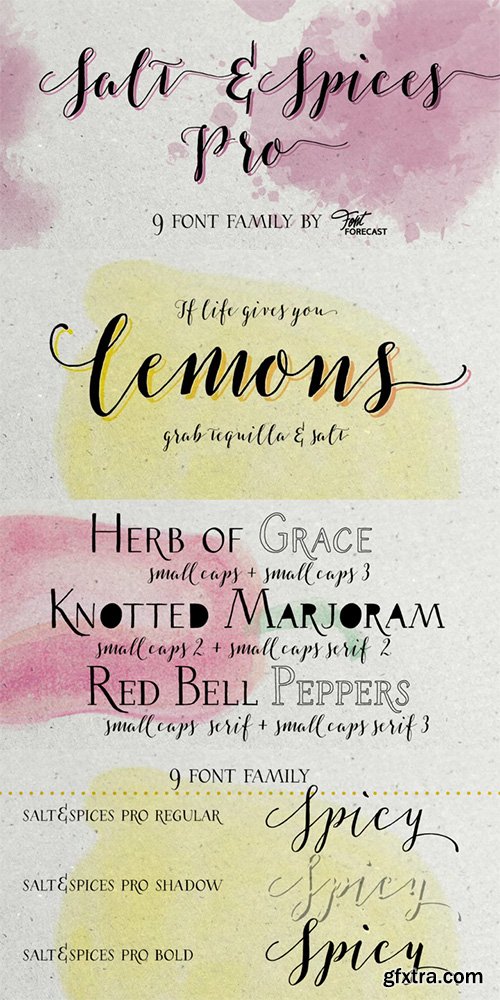 Salt & Spices
Pro
9 FONT FAMILY BY Font
FORECAST
If life gives you
lemons
grab tequilla & salt
HERB OF GRACE
small caps + small caps 3
KNOTTED MARJORAM
small caps 2 + small caps serif 2
RED BELL PEPPERS
small caps serif + small caps serif 3
9 FONT FAMILY
SALT&SPICES PRO REGULAR Spicy
SALT&SPICES PRO SHADOW Spicy
SALT&SPICES PRO BOLD Spicy
gfxtra.com